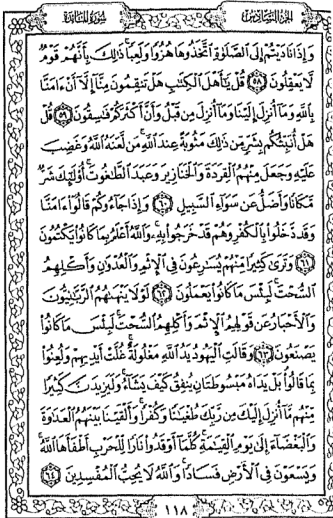 الجزء السادس
سورة المائدة
وَإِذَا نَادَيْتُمْ إِلَى ٱلصَّلَوٰةِ ٱتَّخَذُوهَا هُزُوًا وَلَعِبًا ذَٰلِكَ بِأَنَّهُمْ قَوْمٌ
لَّا يَعْقِلُونَ ٥٨ قُلْ يَٰٓأَهْلَ ٱلْكِتَٰبِ هَلْ تَنقِمُونَ مِنَّآ إِلَّآ أَنْ ءَامَنَّا
بِٱللَّهِ وَمَآ أُنزِلَ إِلَيْنَا وَمَآ أُنزِلَ مِن قَبْلُ وَأَنَّ أَكْثَرَكُمْ فَٰسِقُونَ ٥٩ قُلْ
هَلْ أُنَبِّئُكُم بِشَرٍّ مِّن ذَٰلِكَ مَثُوبَةً عِندَ ٱللَّهِ مَن لَّعَنَهُ ٱللَّهُ وَغَضِبَ
عَلَيْهِ وَجَعَلَ مِنْهُمُ ٱلْقِرَدَةَ وَٱلْخَنَازِيرَ وَعَبَدَ ٱلطَّٰغُوتَ أُو۟لَٰٓئِكَ شَرٌّ
مَّكَانًا وَأَضَلُّ عَن سَوَآءِ ٱلسَّبِيلِ ٦٠ وَإِذَا جَآءُوكُمْ قَالُوٓا۟ ءَامَنَّا
وَقَد دَّخَلُوا۟ بِٱلْكُفْرِ وَهُمْ قَدْ خَرَجُوا۟ بِهِۦ وَٱللَّهُ أَعْلَمُ بِمَا كَانُوا۟ يَكْتُمُونَ
٦١ وَتَرَىٰ كَثِيرًا مِّنْهُمْ يُسَٰرِعُونَ فِى ٱلْإِثْمِ وَٱلْعُدْوَٰنِ وَأَكْلِهِمُ
ٱلسُّحْتَ لَبِئْسَ مَا كَانُوا۟ يَعْمَلُونَ ٦٢ لَوْلَا يَنْهَىٰهُمُ ٱلرَّبَّٰنِيُّونَ
وَٱلْأَحْبَارُ عَن قَوْلِهِمُ ٱلْإِثْمَ وَأَكْلِهِمُ ٱلسُّحْتَ لَبِئْسَ مَا كَانُوا۟
يَصْنَعُونَ ٦٣ وَقَالَتِ ٱلْيَهُودُ يَدُ ٱللَّهِ مَغْلُولَةٌ غُلَّتْ أَيْدِيهِمْ وَلُعِنُوا۟
بِمَا قَالُوا۟ بَلْ يَدَاهُ مَبْسُوطَتَانِ يُنفِقُ كَيْفَ يَشَآءُ وَلَيَزِيدَنَّ كَثِيرًا
مِّنْهُم مَّآ أُنزِلَ إِلَيْكَ مِن رَّبِّكَ طُغْيَٰنًا وَكُفْرًا وَأَلْقَيْنَا بَيْنَهُمُ ٱلْعَدَٰوَةَ
وَٱلْبَغْضَآءَ إِلَىٰ يَوْمِ ٱلْقِيَٰمَةِ كُلَّمَآ أَوْقَدُوا۟ نَارًا لِّلْحَرْبِ أَطْفَأَهَا ٱللَّهُ
وَيَسْعَوْنَ فِى ٱلْأَرْضِ فَسَادًا وَٱللَّهُ لَا يُحِبُّ ٱلْمُفْسِدِينَ ٦٤
١١٨